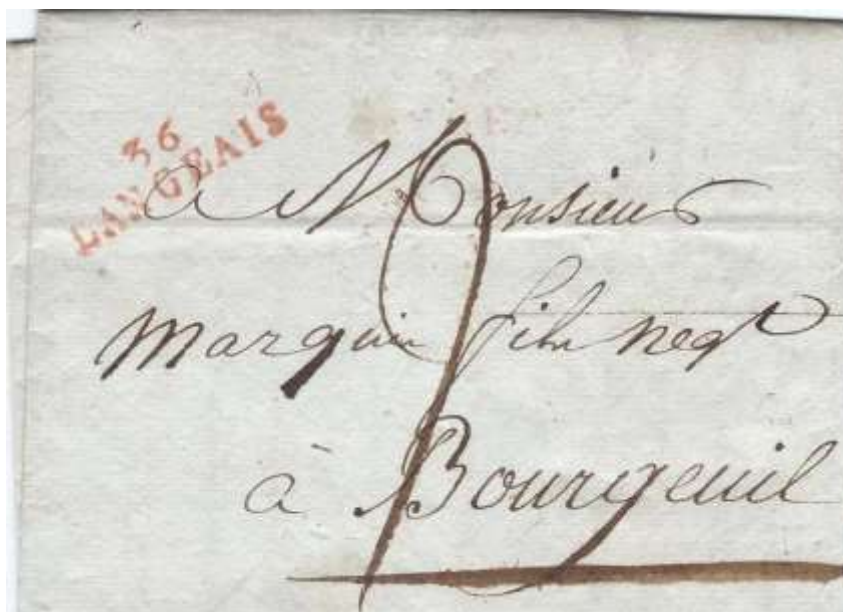 36
LANGEAIS
à Monsieur
Marquis fils negt
à Bourgeuil